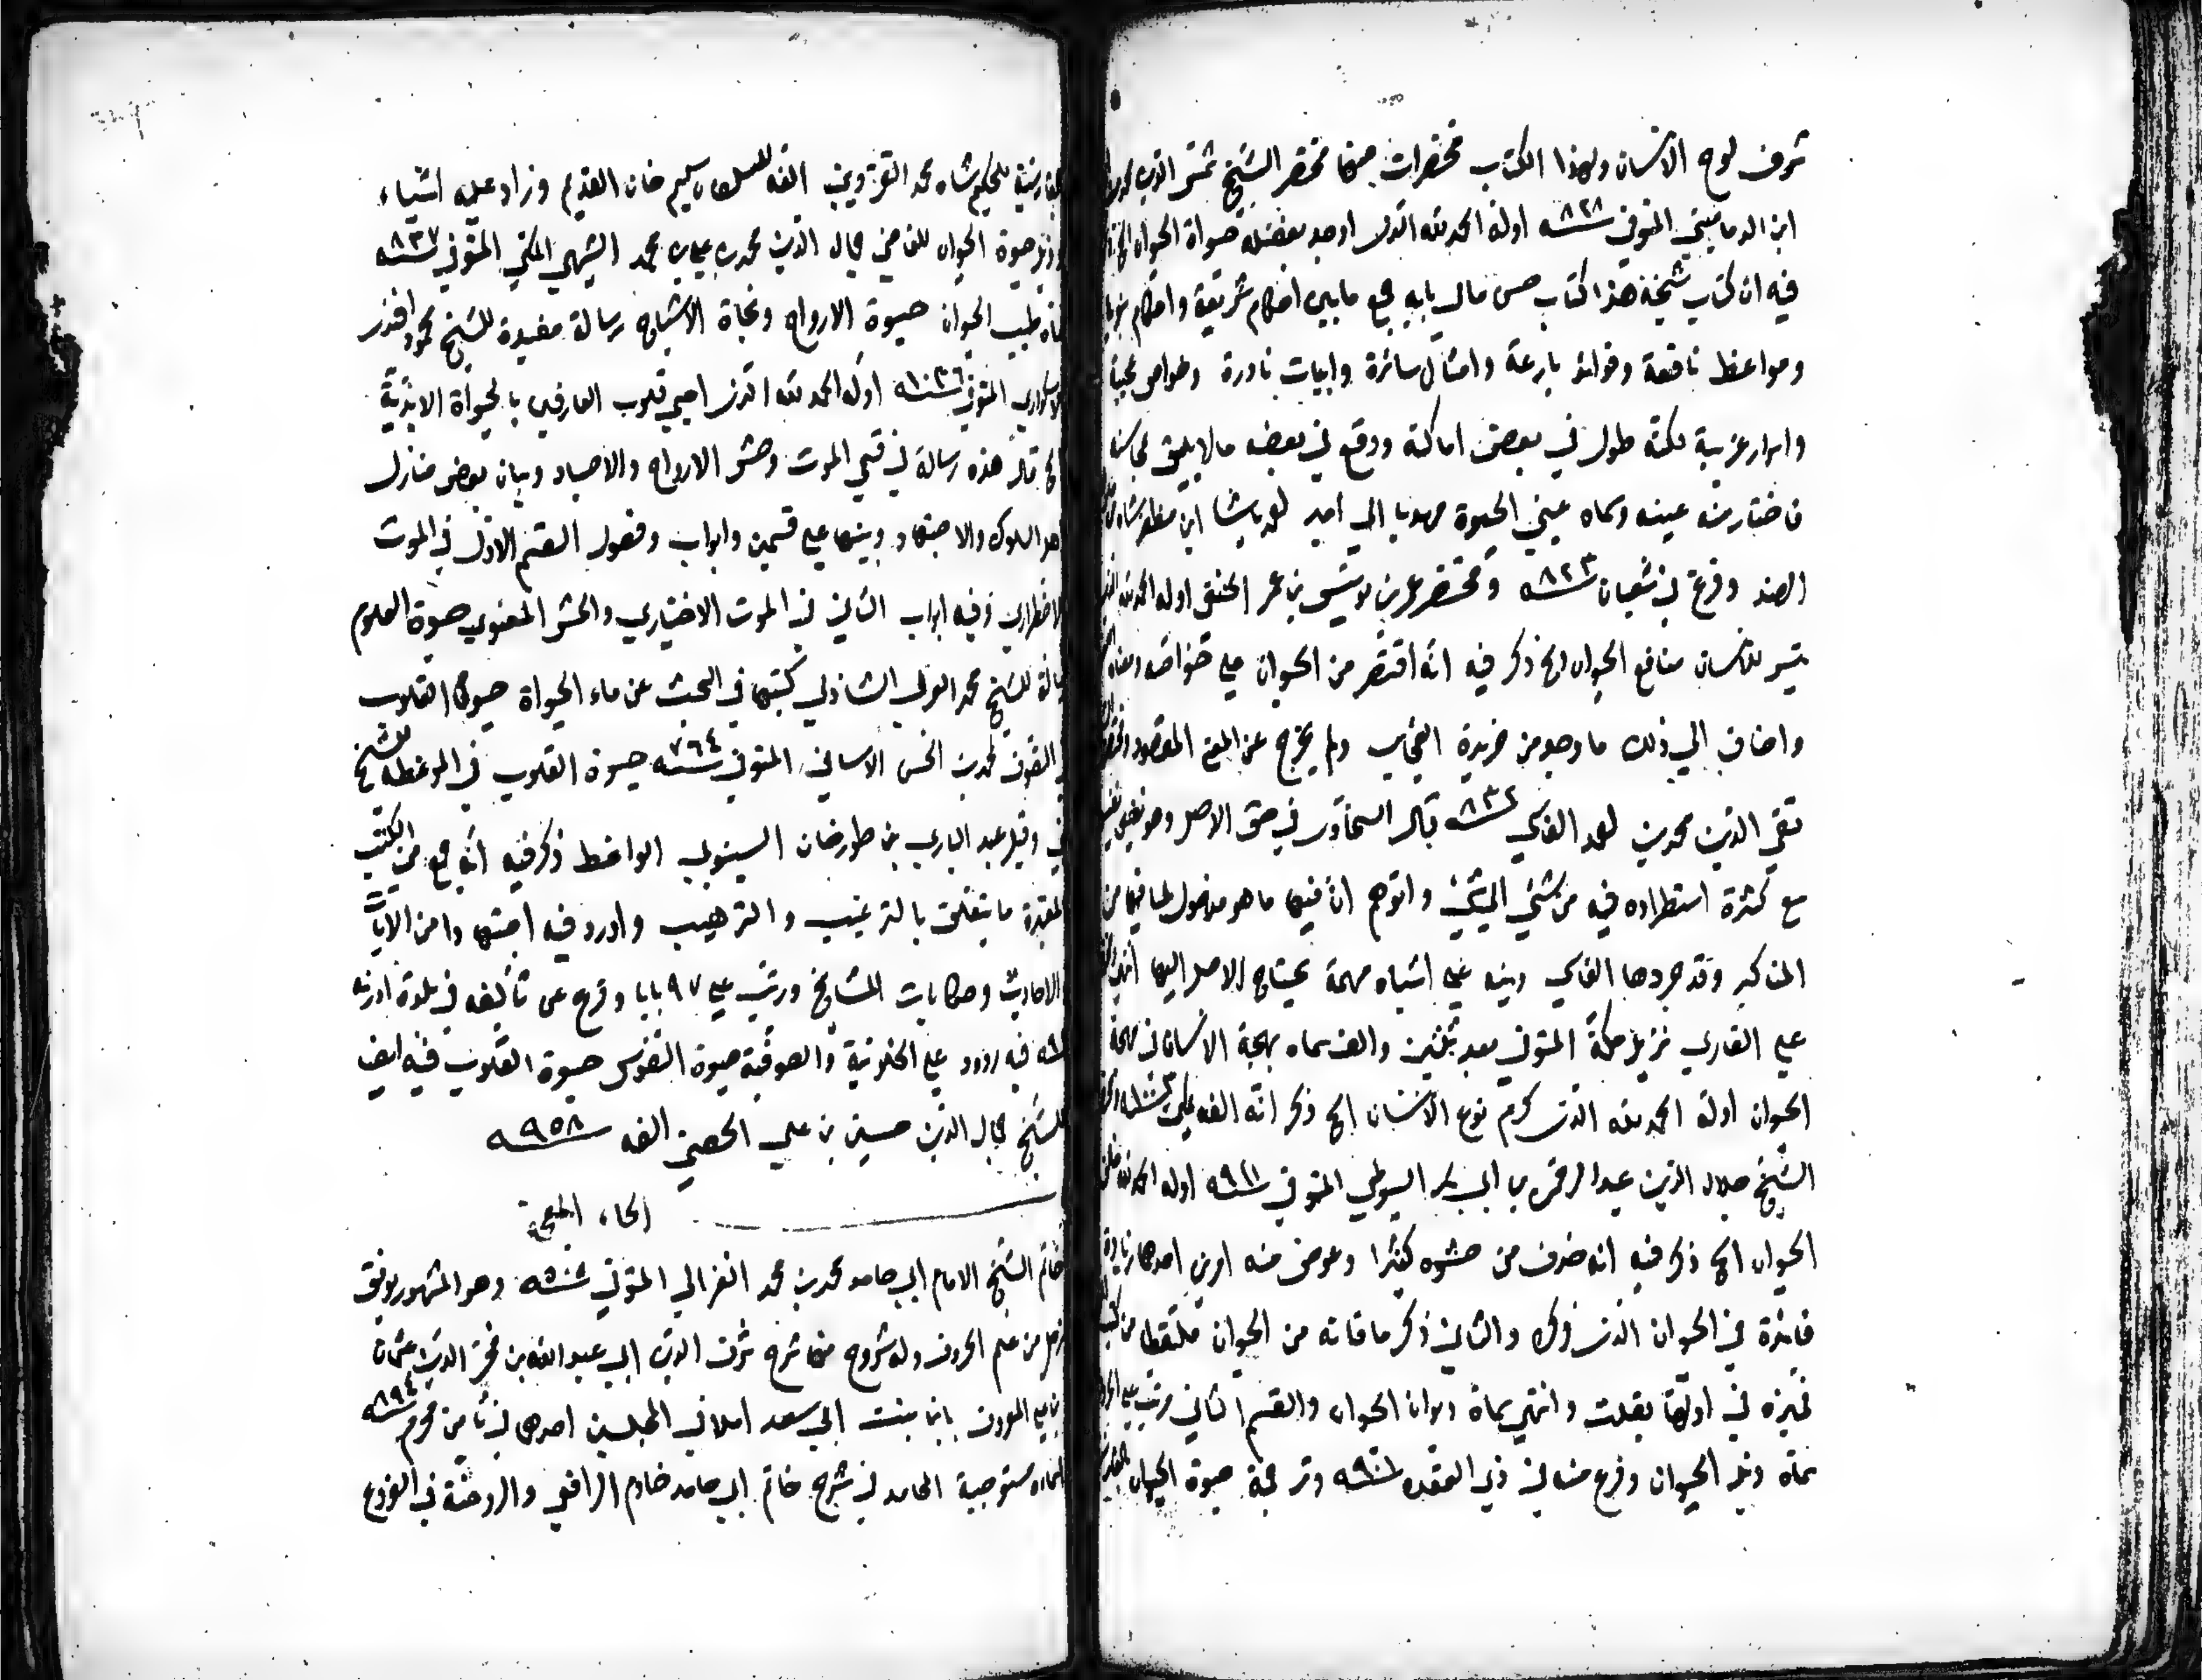 شرف نوع الانسان ولهذا الكتاب مختصرات منها مختصر الشيخ شمس الدين محمد بن
ابن الدماميني المتوفى سنة ٨٢٨ اوله الحمد لله الذي اوجد بفضله حيواة الحيوان الخ
فيه ان كتاب شيخنا هذا كتاب حسن ماله بابه جمع ما بين احكام شريعة واحكام
ومواعظ نافعة وفوائد بارعة وامثال سائرة وابيات نادرة وخواص عجيبة
واسرار غريبة لكنه طول في بعض اماكنه ووقع في بعضه ما لا يليق بمحاسنه
فاختار منه عينه وسماه عين الحيوة مهديا الى احمد شاه ابن مظفر شاه
الهند وفرغ في شعبان سنة ٨٢٣ ومختصر عمر بن يونس بن عمر الحنفي اوله الحمد لله الذي
يسر للانسان منافع الحيوان الخ ذكر فيه انه اقتصر من الحيوان على خواصه ومنافعه
واضاف الى ذلك ما وجد من خريدة العجايب ولم يخرج عن المعنى المقصود ومختصر
تقي الدين محمد بن احمد الفاسي سنة ٨٣٢ قال السخاوي في حق الاصل وهو نفيس
مع كثرة استطراده فيه من شئ الى شئ واتوهم ان فيها ما هو مدخول لما فيها من
المناكير وقد جردها الفاسي ونبه على اشياء مهمة يحتاج الاصل اليها انتهى
علي القاري نزيل مكة المتوفى بعد والف سماه بهجة الانسان في مهجة
الحيوان اوله الحمد لله الذي كرم نوع الانسان الخ ذكر انه الفه بمكة سنة ١٠٠٣
الشيخ جلال الدين عبد الرحمن بن ابي بكر السيوطي المتوفى سنة ٩١١ اوله الحمد لله خالق
الحيوان الخ ذكر فيه انه حذف من حشوه كثيرا وعوض منه امرين احدهما زيادة
فائدة في الحيوان الذي ذكره والثاني ذكر ما فاته من الحيوان ملتقطا من كتب
مميزة في اولها بقلت وانتهى بماة ديوان الحيوان والقسم الثاني مرتب على الحروف
سماه ذيل الحيوان وفرغ منها في ذي القعدة سنة ٩٠١ وترجمة حيوة الحيوان
بالفارسية للحكيم شاه محمد القزويني الفه للسلطان سليم خان القديم وزاد عليه اشياء
وذيل حيوة الحيوان للقاضي جمال الدين محمد بن علي بن محمد الشيبي المكي المتوفى سنة ٨٣٧
سماه طيب الحيوان حيوة الارواح ونجاة الاشباح رسالة مفيدة للشيخ محمود افندي
الاسكداري المتوفى سنة ١٠٣٦ اوله الحمد لله الذي احيى قلوب العارفين بالحيواة الابدية
الخ قال هذه رسالة في قسمي الموت وحشر الارواح والاجساد وبيان بعض منازل
اهل السلوك والاجتهاد وبينها على قسمين وابواب وفصول القسم الاول في الموت
الاضطراري وفيه ابواب الثاني في الموت الاختياري والحشر المعنوي حيوة العلوم
رسالة للشيخ محمد العوفي الشاذلي كتبها في البحث عن ماء الحيواة حيوة القلوب
في التصوف لمحمد بن الحسن الاسنائي المتوفى سنة ٧٦٤ حيوة القلوب في الموعظة للشيخ
وقيل عبد الباري بن طورخان السينوبي الواعظ ذكر فيه انه جمع من الكتب
المعتبرة ما يتعلق بالترغيب والترهيب واورد فيه اجتهادا من الايات
والاحاديث وحكايات المشايخ ورتب على ٩٧ بابا وفرغ عن تأليفه في بلدة ادرنه
فيه ردود على الخلوتية والصوفية حيوة النفوس حيوة القلوب فيه ايضا
للشيخ جمال الدين حسين بن علي الحصني الفه سنة ٩٥٨
الخاء المعجمة
خاتم الشيخ الامام ابي حامد محمد بن محمد الغزالي المتوفى سنة ٥٠٥ وهو المشهور بوفق
زحل من علم الحروف وله شروح منها شرح شرف الدين ابي عبد الله بن فخر الدين عثمان
بن علي المعروف بابن بنت ابي سعد املاه في المجلسين احدهما في ثامن محرم سنة ٨٩٤
سماه مستوجبة المحامد في شرح خاتم ابي حامد خادم الرافعي والروضة في الفروع